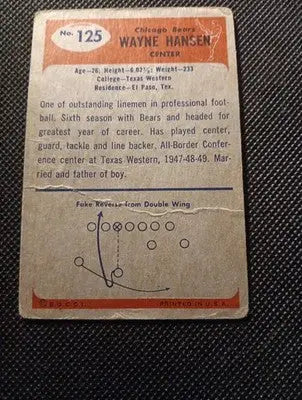 No. 125
Chicago Bears
WAYNE HANSEN
CENTER
Age-26, Height-6.02½; Weight-233
College-Texas Western
Residence-El Paso, Tex.
One of outstanding linemen in professional foot-
ball. Sixth season with Bears and headed for
greatest year of career. Has played center,
guard, tackle and line backer. All-Border Confer-
ence center at Texas Western, 1947-48-49. Mar-
ried and father of boy.
Fake Reverse from Double Wing
© B.G.C.I.
PRINTED IN U.S.A.